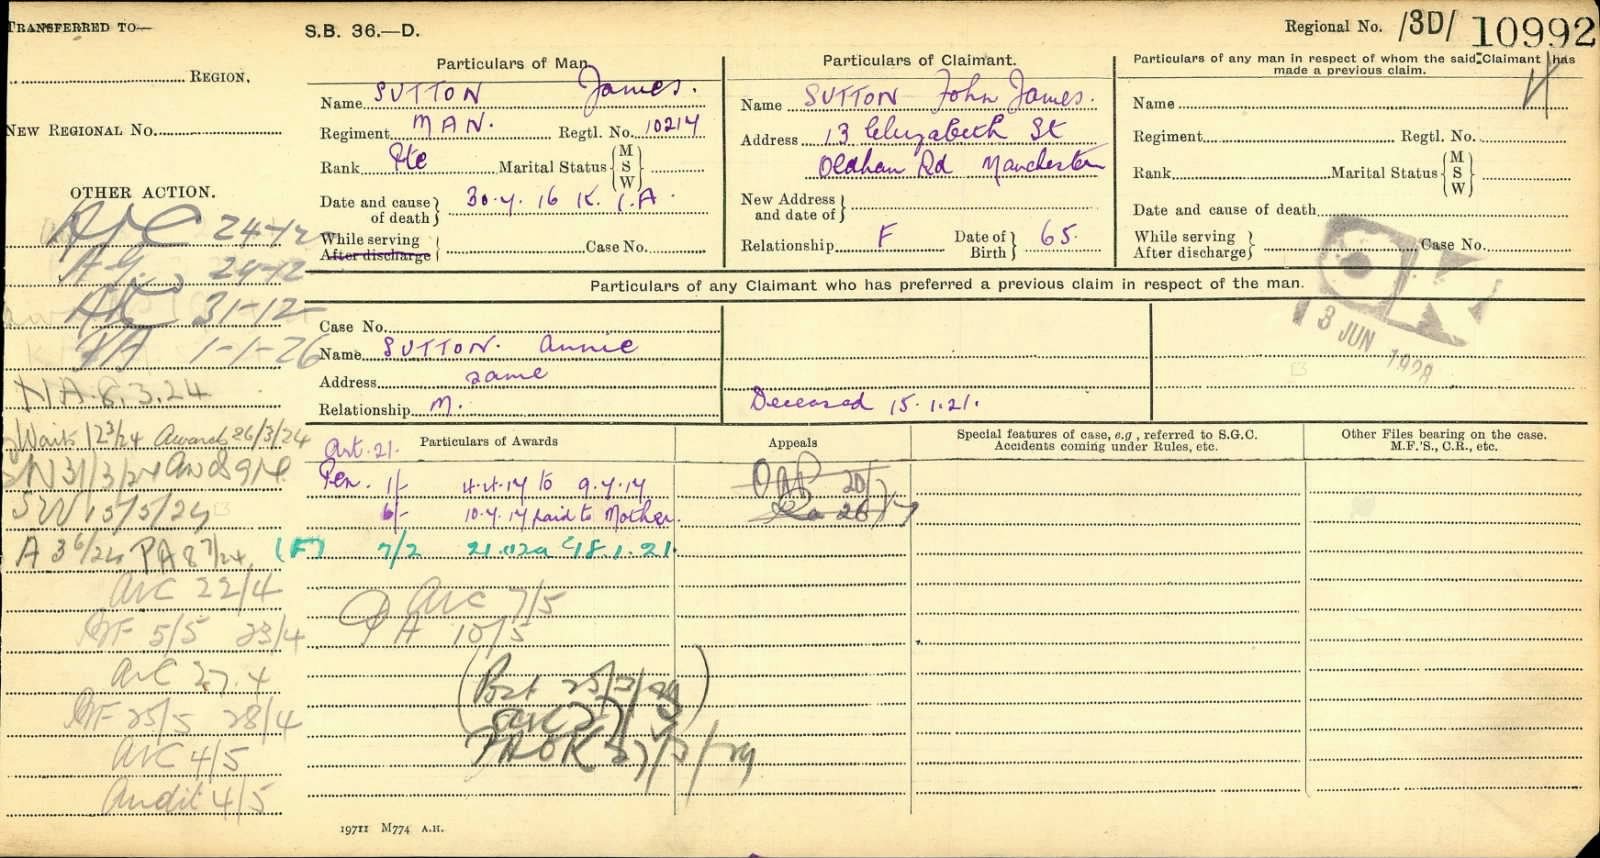 TRANSFERRED TO—
REGION,
NEW REGIONAL No.
OTHER ACTION.
24-12
29-12
31-12
1-1-26
N A 8.3.24
Waits 12 3/24 Awards 26/3/24
A 3 6/24 PA 8 7/24
22/4
5/5 23/4
27.4
25/5 28/4
4/5
Audit 4/5
S.B. 36.—D.
Regional No. /3D/ 10992
Particulars of Man.
Name SUTTON James.
Regiment MAN. Regtl. No. 10214
Rank Pte Marital Status { M S W
Date and cause of death } 30.7.16 K.I.A.
While serving
After discharge } Case No.
Particulars of Claimant.
Name SUTTON John James.
Address 13 Elizabeth St
Oldham Rd Manchester
New Address and date of }
Relationship F Date of Birth } 65.
Particulars of any man in respect of whom the said Claimant has made a previous claim.
Name
Regiment Regtl. No.
Rank Marital Status { M S W
Date and cause of death
While serving
After discharge } Case No.
3 JUN 1928
Particulars of any Claimant who has preferred a previous claim in respect of the man.
Case No.
Name SUTTON. Annie
Address same
Relationship M.
Deceased 15.1.21.
Art. 21. Particulars of Awards
Pen. 1/- 4.4.17 to 9.7.17
6/- 10.7.17 paid to Mother.
(F) 7/2 18.1.21.
7/5
P A 10/5
Appeals
OAP
Special features of case, e.g., referred to S.G.C.
Accidents coming under Rules, etc.
Other Files bearing on the case.
M.F.'S., C.R., etc.
19711 M774 A.H.